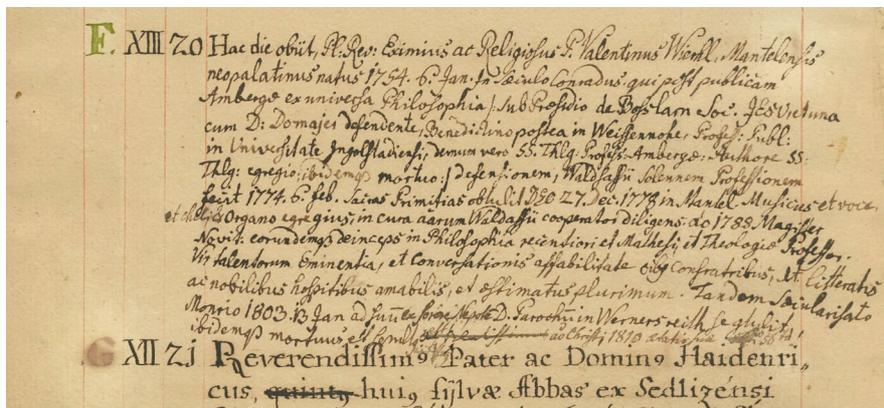 F. XIII 20 Hac die obiit, Pl. Rev: Eximius ac Religiosus P. Valentinus Wierl, Mantelensis
neopalatinus natus 1754. 6. Jan. in seculo Conradus. qui post publicam
Ambergæ ex universa Philosophia / sub Præsidio de Soc. JESV et una
cum D: Domajer defendente, Benedictino postea in Weissennohe, Profess: Publ:
in Universitate Ingolstadiensi, demum vero SS. Thlg: Profess. Ambergæ. Authore SS.
Thlg: egregio, ibidemq mortuo:/ defensionem, Waldsassii Solennem Professionem
fecit 1774. 6. feb. Sacras Primitias obtulit DEO 27. Dec. 1778 in Mantel Musicus et voce,
et Organo egregius, in cura Waldassii cooperator diligens. ao 1788 Magister
Novit: eorundemq deinceps in Philosophia recentiori et Mathesi, et Theologiæ Professor.
Vir talentorum eminentia, et conversationis affabilitate confratribus, et litteratis
ac nobilibus hospitibus amabilis, et æstimatus plurimum. Tandem Sæcularisato
Monrio 1803. 13 Jan ad D. Parochum in Wernersreith se
ibidemq mortuus est ao Christi 1810
G XII 21 Reverendissim9 Pater ac Domin9 Haidenri,,
cus, quint9 hui9 sylvæ Abbas ex Sedlizensi